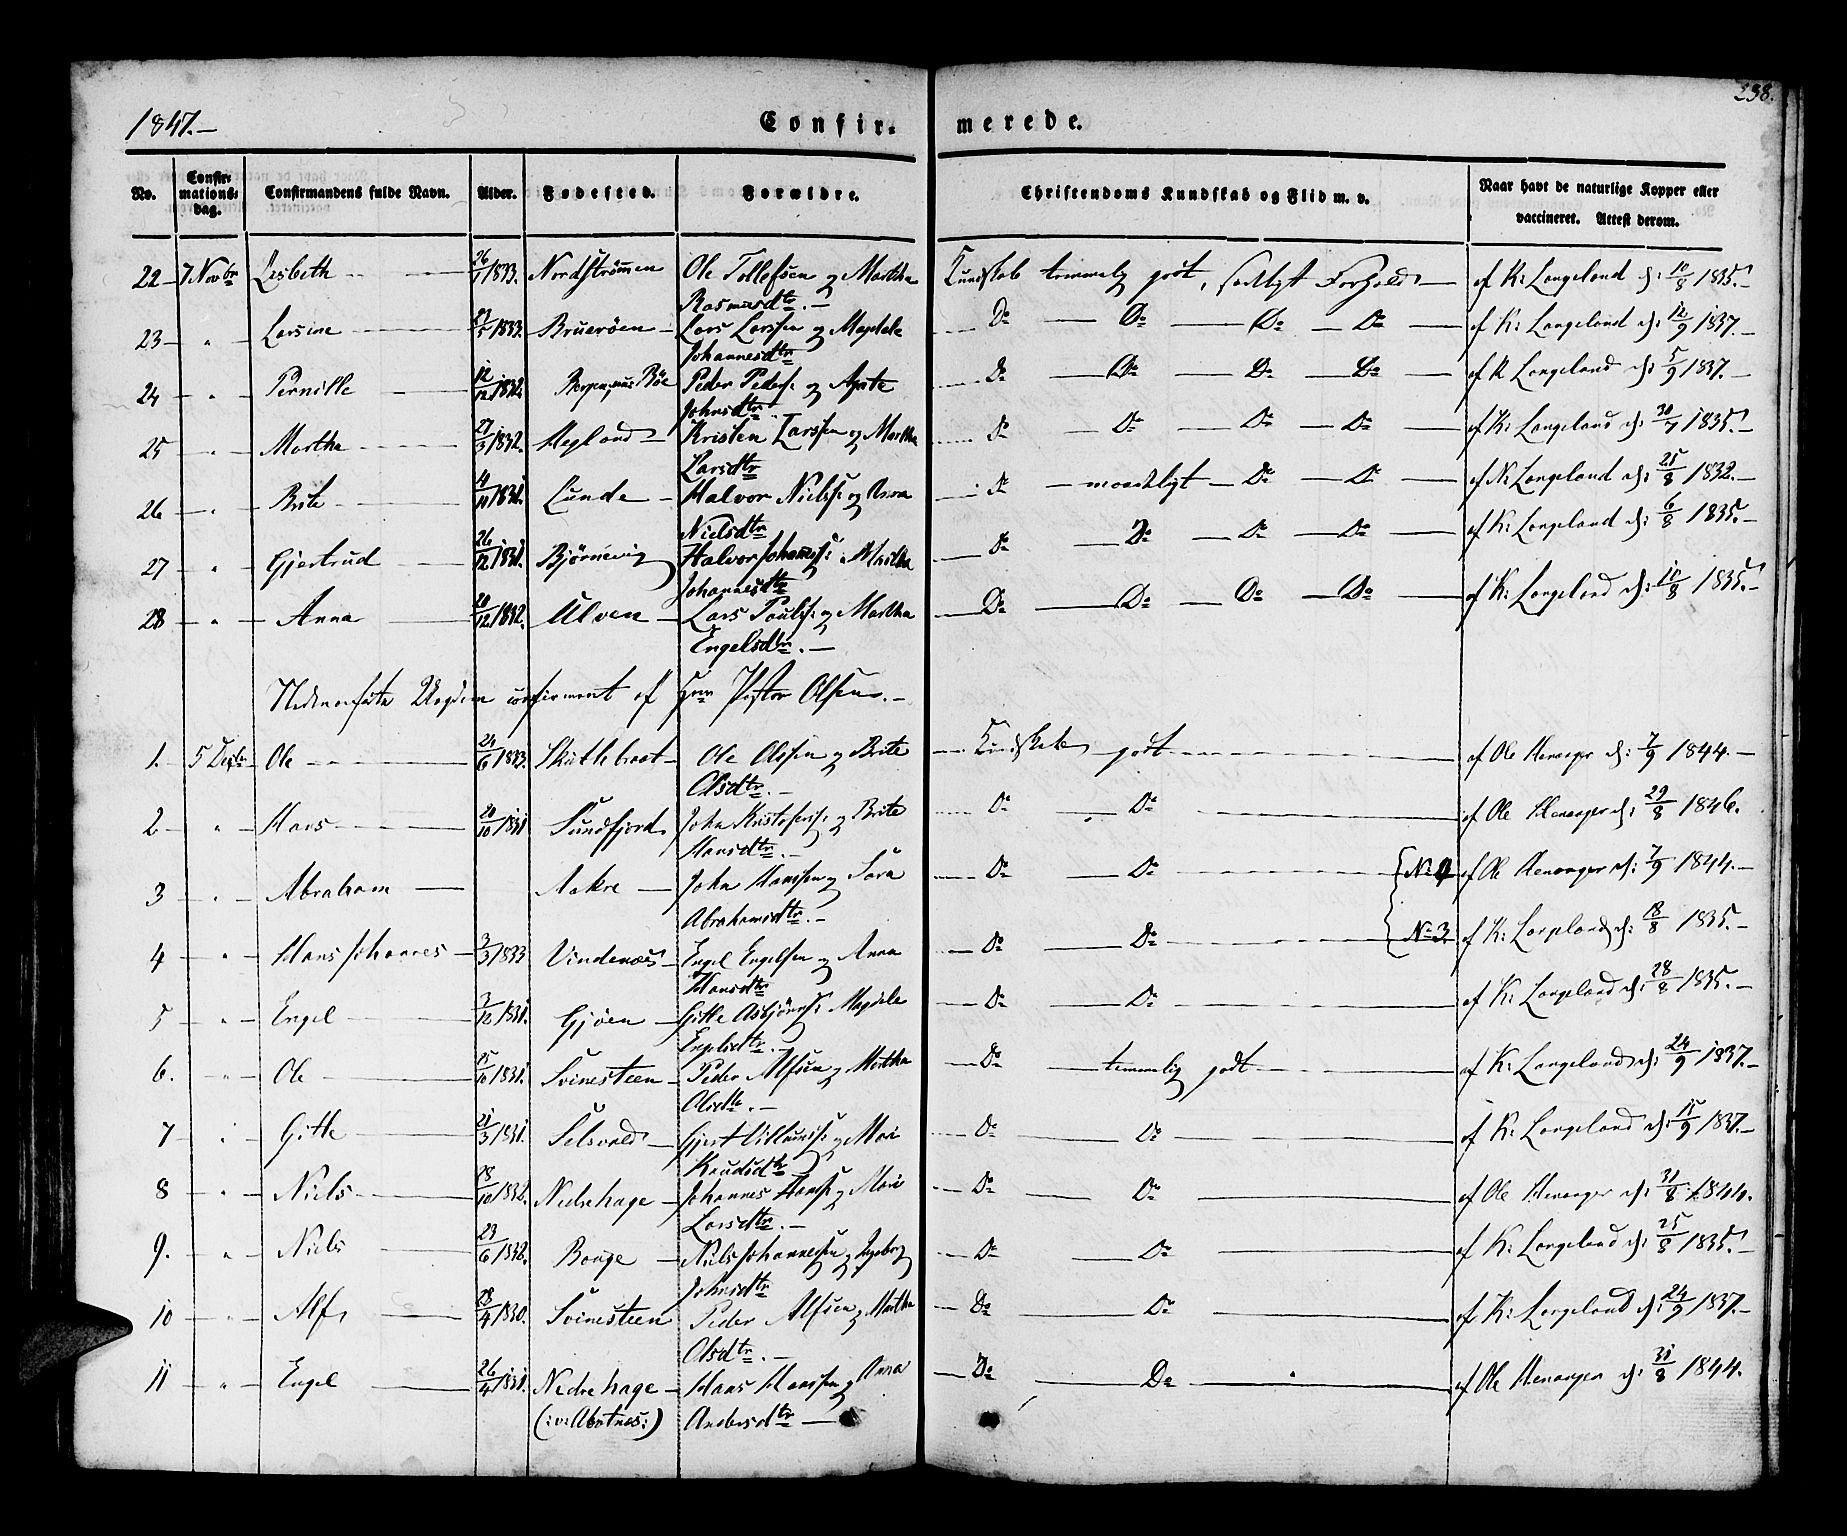 1847.— Confir- merede. 238.
No. Confirmations-dag. Confirmandens fulde Navn. Alder. Fødested. Forældre. Christendoms Kundskab og Flid m. v. Naar havt de naturlige Kopper eller vaccineret. Attest derom.
22 — 7 Novbr — Lisbeth — 26/1 1833. Nordstrømen Ole Tollefsen og Martha Kundskab temmelig godt, sædligt Forhold — af K: Langeland d: 10/8 1835.—
Rasmusdtr.—
23 — " — Larsine — 27/5 1833. Bruerøen — Lars Larssen og Magdale — Do — Do — Do — Do — af K: Langeland d: 12/9 1837.—
Johannesdtr
24 — " — Pernille — 12/12 1832. Peder Peders: og Agate — Do — Do — Do — Do — af K Langeland d: 5/9 1837.—
Johnsdtr
25 — " — Martha — 27/3 1832. Hegland — Kristen Larssen og Martha — Do — Do — Do — Do — af K: Langeland d: 30/7 1835.—
Larsdtr
26 — " — Brite — Lunde — Halvor Niels: og Anna — Do — maadeligt — Do — Do — af N: Langeland d: 25/8 1832.—
Nielsdtr
27 — " — Gjertrud — 26/12 1831. Bjørnevig Halvor Johannes: Martha — Do — Do — Do — Do — af K: Langeland d: 6/8 1835.—
Johannesdtr
28 — " — Anna — 20/12 1832. Ulven — Lars Pouls: og Martha — Do — Do — Do — Do — af K: Langeland d: 10/8 1835.—
Engelsdtr.—
Nedenanførte Ungdom confirmeret af Hrr Pastor Olsen.—
1. — 5 — Ole — 24/6 1833. Ole Olssen og Brite — Kundskab — godt — af Ole Henanger d: 7/9 1844.—
Olsdtr.—
2 — " — Hans — 20/10 1831 Sundfjord John Kristofers: og Brite — Do — Do — af Ole Henanger d: 29/8 1846.
Hansdtr.—
3 — " — Abraham — Aakre — John Hanssen og Sara — Do — Do — { No 4 af Ole Henanger d: 7/9 1844.—
Abrahamsdtr.—
4 — " — Hans Johannes — 3/3 1833 Vindenæs — Engel Engelsen og Anna — Do — Do — { No 3. af K: Langeland d: 18/8 1835.—
Hansdtr
5 — " — Engel — Gjøen — Gitle Asbjørns: Magdele — Do — Do — af K: Langeland d: 28/8 1835.—
Engelsdtr.—
6. — " — Ole — 15/10 1831. Svinesteen — Peder Alfsen og Martha — Do — temmelig godt — af K: Langeland d: 24/9 1837.—
Olsdtr.—
7 — " — Gitle — 21/3 1831. Selsvold — Gjert Villums: og Mari — Do — Do — af K: Langeland d: 15/9 1837.—
Knudsdtr
8 — " — Niels — 28/10 1832. Nedrehage — Johannes Hans: og Mari — Do — Do — af Ole Henanger d: 31/8 1844.
Larsdtr.—
9. — " — Niels — 23/6 1832. Bonge — Niels Johannessen og Ingeborg — Do — Do — af K: Langeland d: 25/8 1835.—
Johnsdtr
10 — " — Alf — 28/4 1830. Svinesteen Peder Alfsen og Martha — Do — Do — af K: Langeland d: 24/9 1837.—
Olsdtr.—
11 — " — Engel — 26/4 1831. Nedrehage — Hans Hanssen og Anna — Do — Do — af Ole Henanger d: 31/8 1844.
Andersdtr —